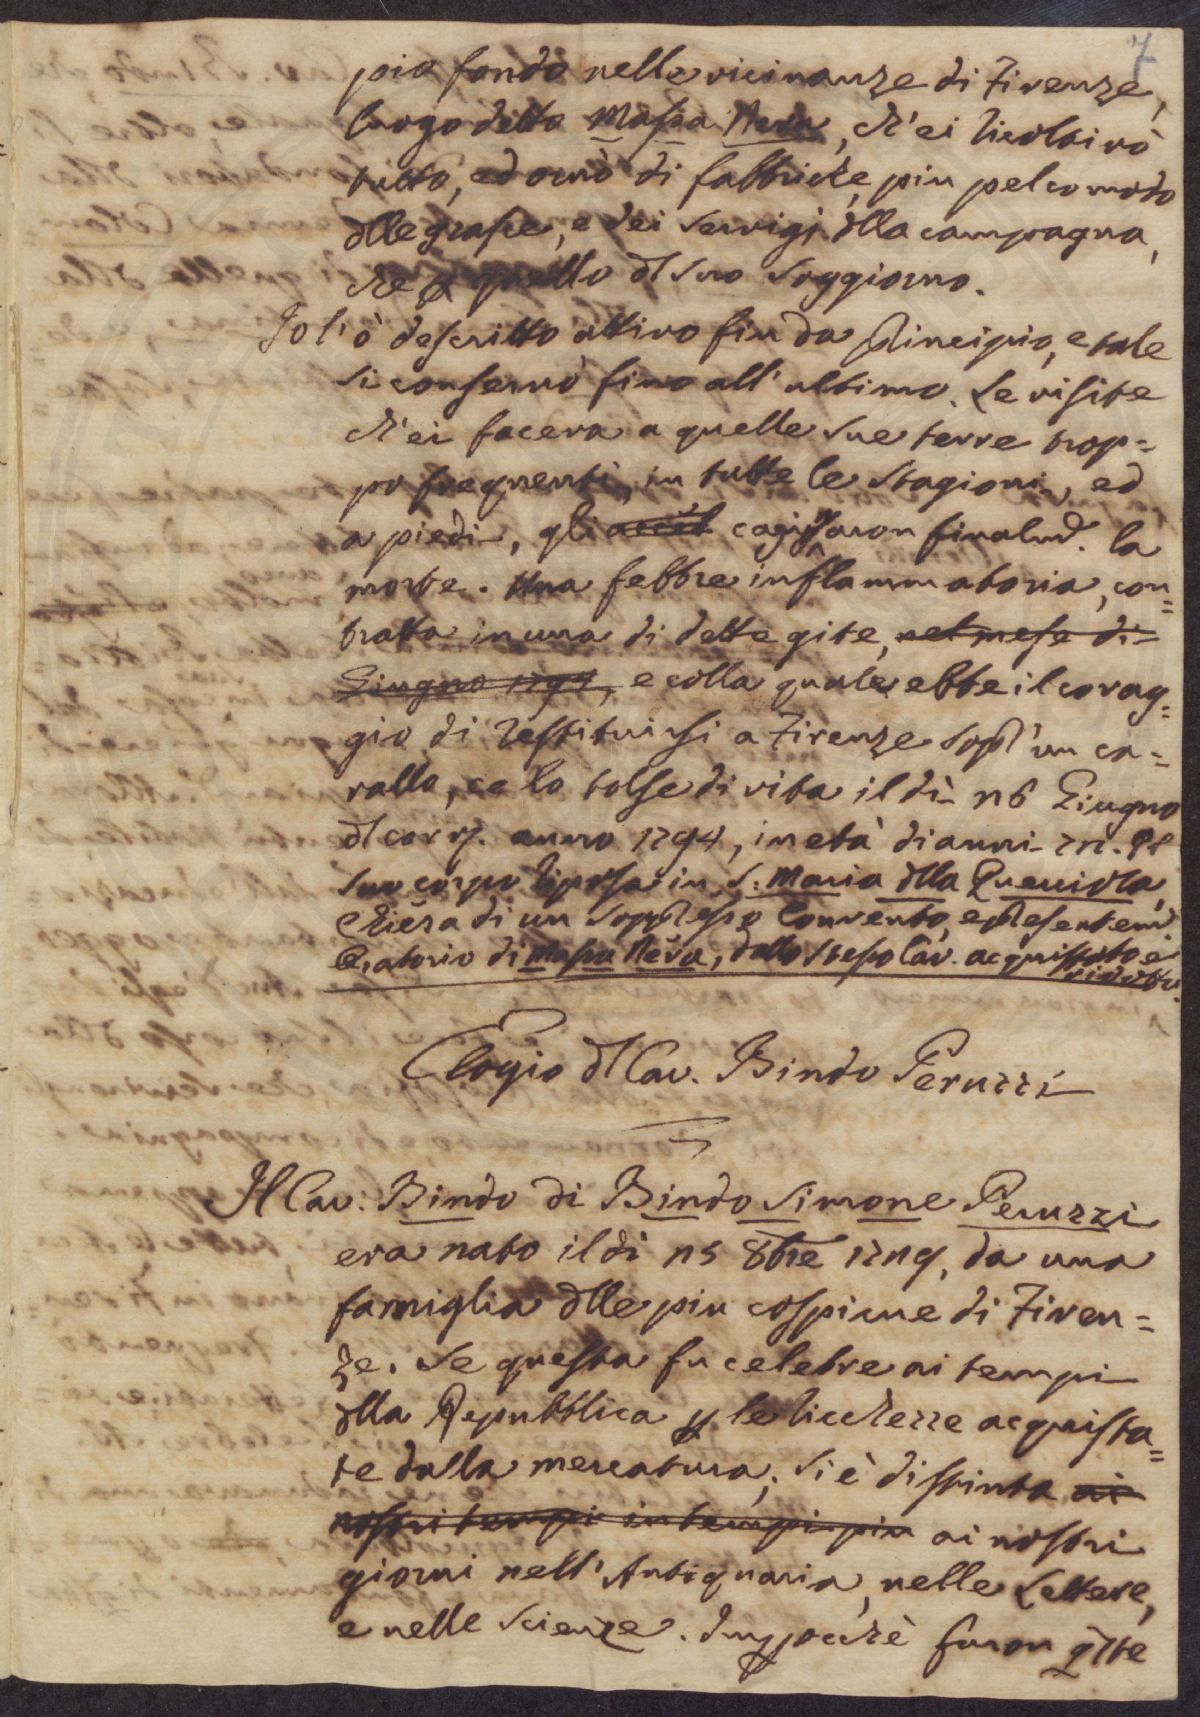 7
pio fondo nelle vicinanze di Firenze,
luogo detto Massa Nera, ch'ei ricoltivò
tutto, ed ornò di fabbriche, più pel comodo
dlle grasce, e dei servigj dlla campagna,
che p quello dl suo soggiorno.
Io l'ò descritto attivo fin da principio, e tale
si conservò fino all'ultimo. Le visite
ch'ei faceva a quelle sue terre trop=
po frequenti, in tutte le stagioni, ed
a piedi, gli cagionaron finalmd. la
morte. Una febbre inflammatoria, con=
tratta in una di dette gite, nel mese di
Giugno 1794, e colla quale ebbe il corag=
gio di restituirsi a Firenze sopr'un ca=
vallo, ce lo tolse di vita il dì 26 Giugno
dl corr. anno 1794, in età di anni 72. Il
suo corpo riposa in S. Maria dlla Querciola,
chiesa di un soppresso Convento, e presentem
Oratorio di Massa Nera, dallo stesso Cav. acquistato e
Elogio dl Cav. Bindo Peruzzi
Il Cav. Bindo di Bindo Simone Peruzzi
era nato il dì 25 8bre 1729, da una
famiglia dlle più cospicue di Firen=
ze. Se questa fu celebre ai tempi
dlla Repubblica p le ricchezze acquista=
te dalla mercatura, si è distinta ai
nostri tempi in tempi più ai nostri
giorni nell'Antiquaria, nelle Lettere,
e nelle Scienze. Imperocchè furon